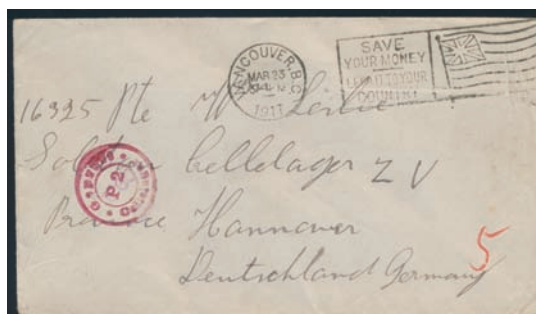 VANCOUVER, B.C.
MAR 23
1917
SAVE
YOUR MONEY
LEND IT TO YOUR
COUNTRY
16325 Pte W Leslie
Celle lager Z V
P 2
Hannover
5
Deutschland Germany